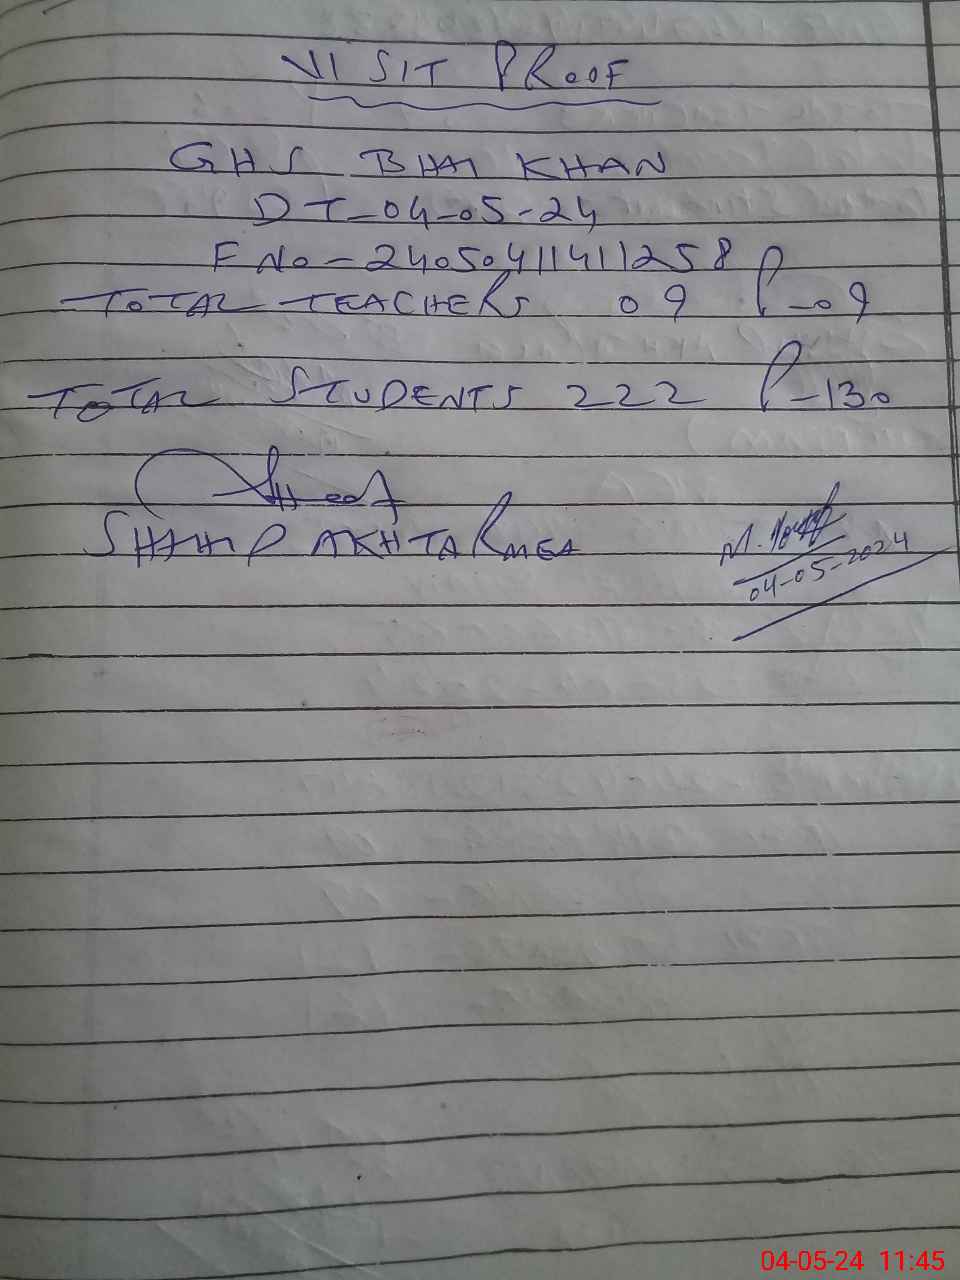 VISIT PROOF
GHS BHAI KHAN
DT-04-05-24
F No-2405041141258
TOTAL TEACHERS 09 P-09
TOTAL STUDENTS 222 P-130
AKHTAR MEA
M.
04-05-2024
04-05-24 11:45